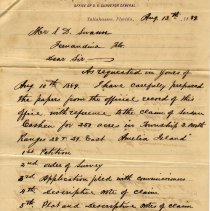 OFFICE OF U. S. SURVEYOR GENERAL
Tallahassee, Florida, Aug 13th 1889
Mr L. D. Swann
Fernandina Fla.
Dear Sir:
As requested in yours of
Aug 10th 1889. I have carefully prepared
the papers from the official record of this
office with reference to the claim of
for 250 acres in Township 2 North
Ranges 28 & 29 East Amelia Island
1st Petition
2nd order of Survey
3rd Application filed with commissioners
4th descriptive notes of claim
5th Plat and descriptive notes of claim